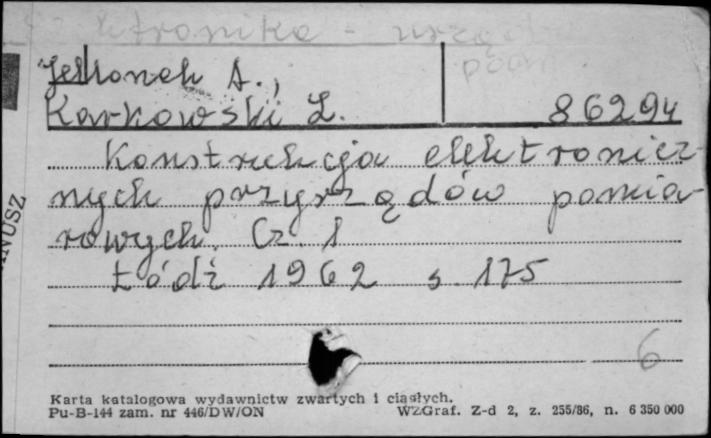 Elektronika - urządz.
pom.
Jellonek A.,
Karkowski Z. 86294
Konstrukcja elektronicz-
nych przyrządów pomia-
rowych. Cz. 1
Łódź 1962 s. 175
6
Karta katalogowa wydawnictw zwartych i ciągłych.
Pu-B-144 zam. nr 446/DW/ON WZGraf. Z-d 2, z. 255/86, n. 6 350 000